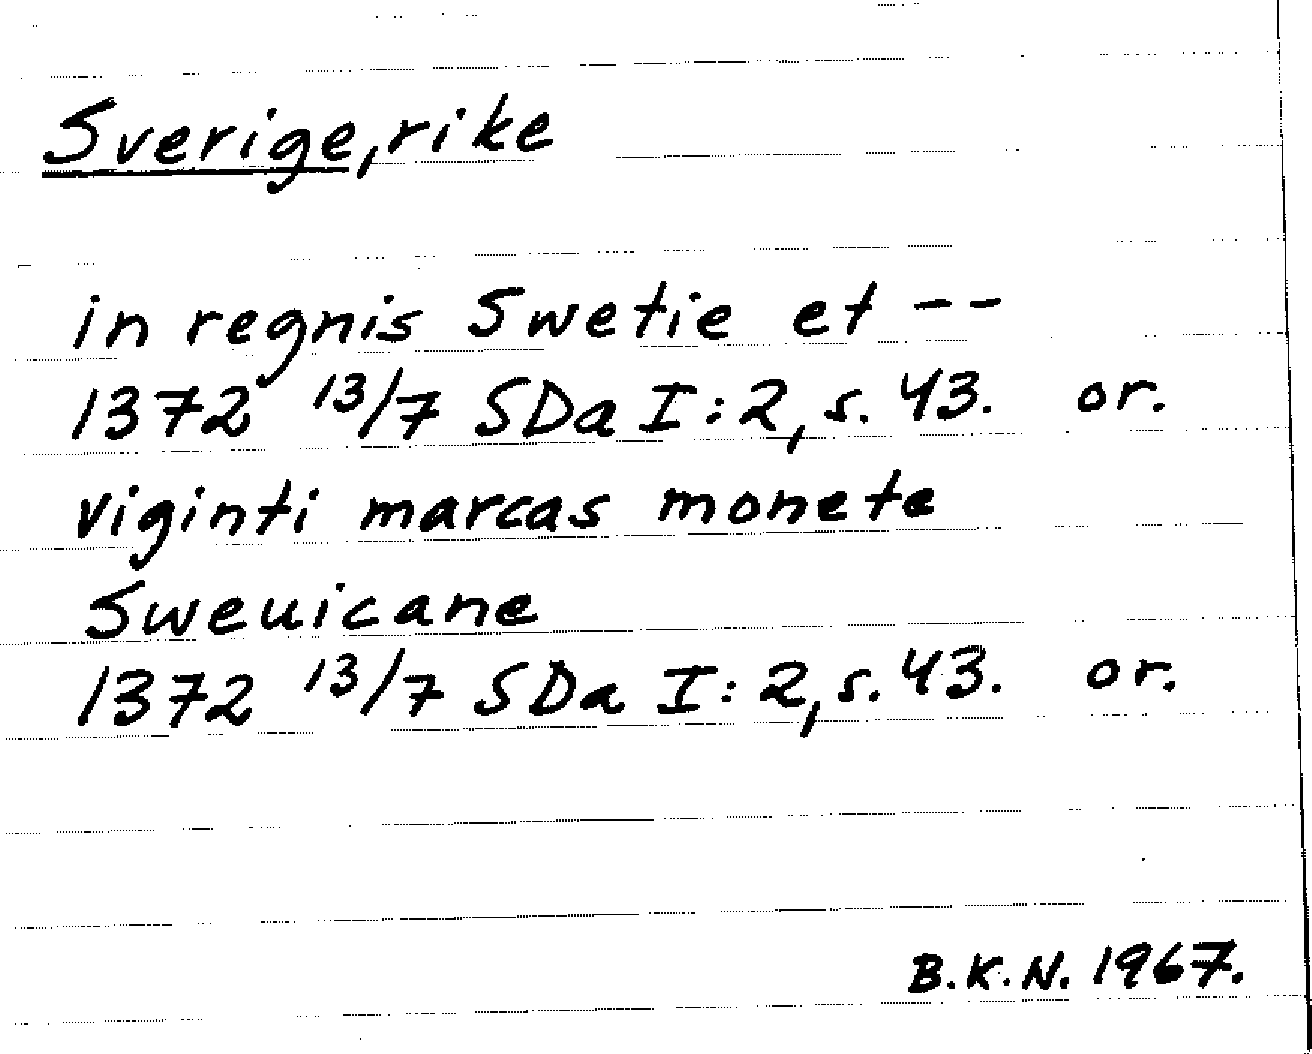 Sverige, rike
in regnis Swetie et --
1372 13/7 SDa I:2, s. 43. or.
viginti marcas monete
Sweuicane
1372 13/7 SDa I:2, s. 43. or.
B.K.N. 1967.